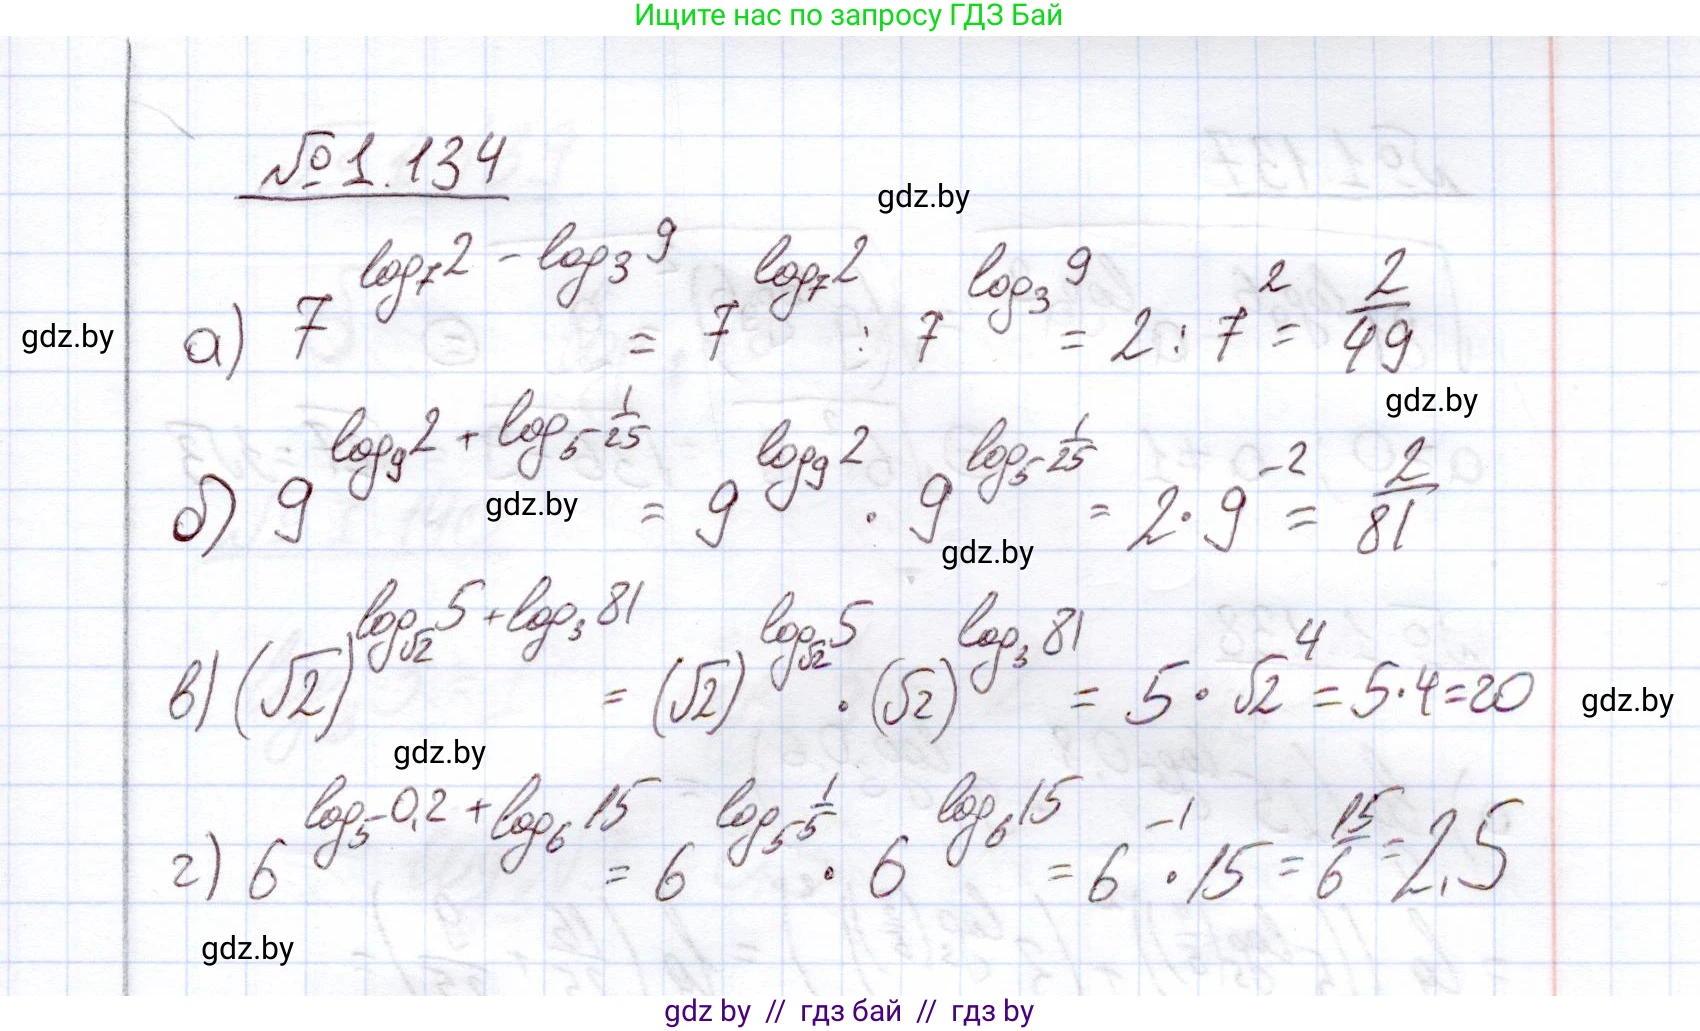 Ищите нас по запросу ГДЗ Бай
№ 1.134
gdz.by
а) 7^(log₇2 - log₃9) = 7^(log₇2) : 7^(log₃9) = 2 : 7² = 2/49
gdz.by
gdz.by
б) 9^(log₉2 + log₅ 1/25) = 9^(log₉2) · 9^(log₅ 1/25) = 2 · 9⁻² = 2/81
gdz.by
gdz.by
в) (√2)^(log_√2 5 + log₃81) = (√2)^(log_√2 5) · (√2)^(log₃81) = 5 · √2⁴ = 5·4=20
gdz.by
gdz.by
г) 6^(log₅0,2 + log₆15) = 6^(log₅ 1/5) · 6^(log₆15) = 6⁻¹ · 15 = 15/6 = 2,5
gdz.by
gdz by // гдз бай // гдз by